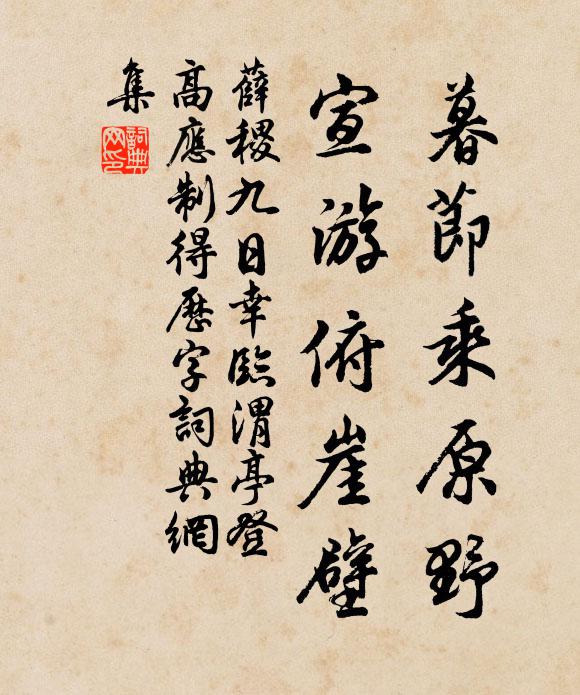 暮節乘原野
宣游俯崖壁
薛稷九日幸臨渭亭登
高應制得歷字詞典網
集
詞典
网印